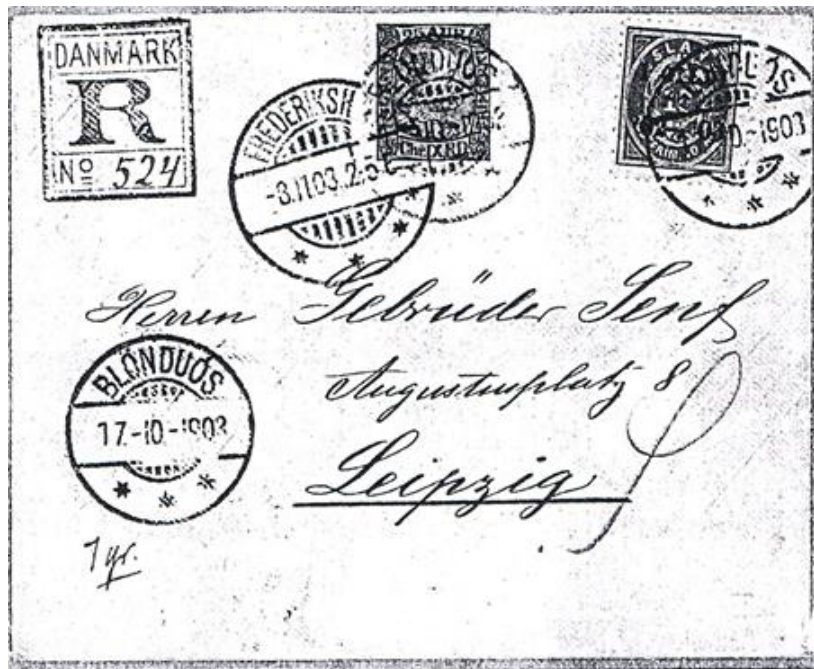 DANMARK
R
No 524
FREDERIKSH
-3.11.03. 2.5
-10.-1903
Herren Gebrüder Senf
Augustusplatz 8
Leipzig
BLÖNDUÓS
17.-10.-1903
1 gr.